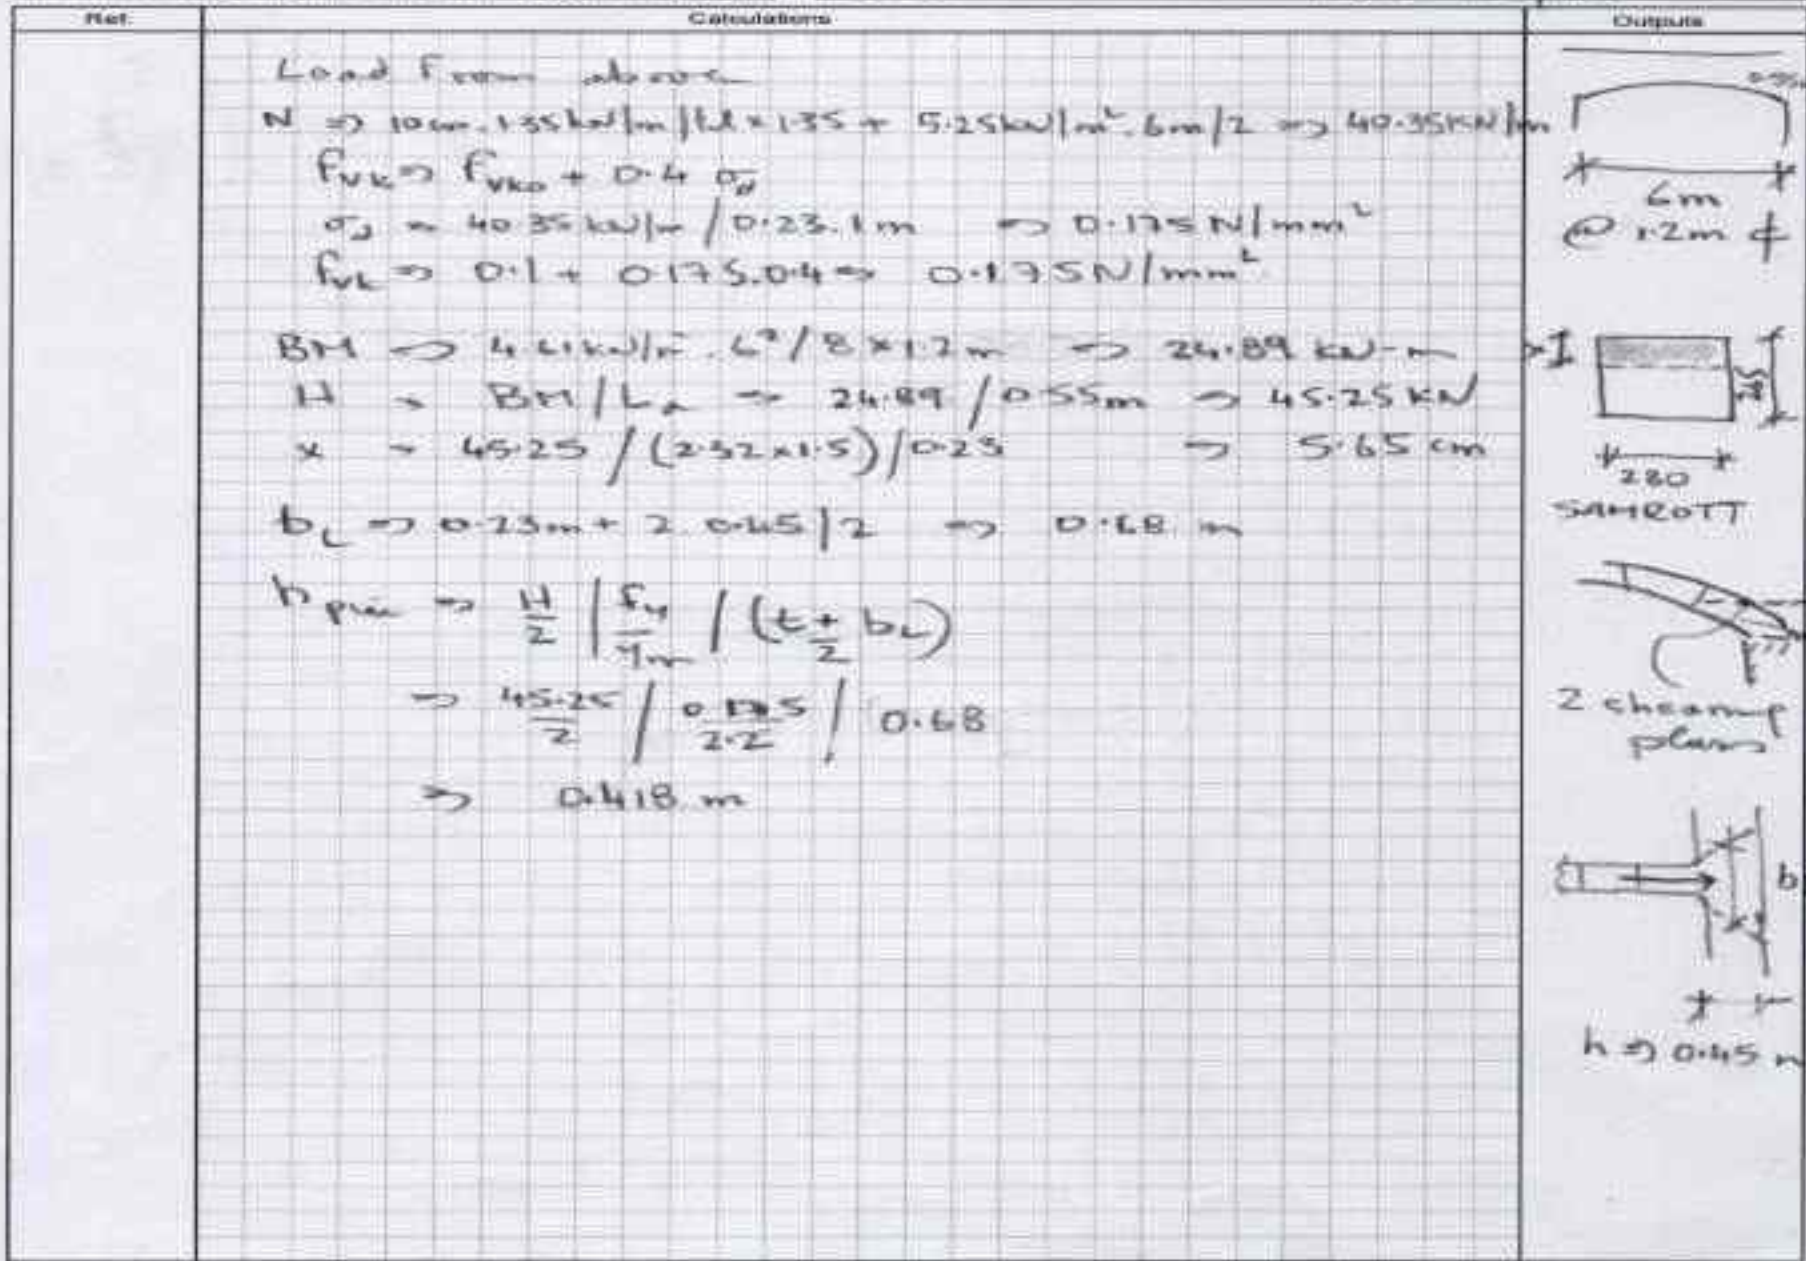 Ref
Calculations
Outputs
Load From above
N ⇒ 10cm.1.35kN/m/ × 1.35 + 5.25kN/m².6m/2 ⇒ 40.35KN/m
fvk ⇒ fvko + 0.4 σd
σd = 40.35 kN/m /0.23.1m ⇒ 0.175 N/mm²
fvk ⇒ 0.1 + 0.175.0.4 ⇒ 0.175N/mm²
BM ⇒ 4.61kN/m.6²/8 × 1.2m ⇒ 24.89 kN-m
H = BM/La ⇒ 24.89 /0.55m ⇒ 45.25 KN
x = 45.25 / (2.32×1.5)/0.23 ⇒ 5.65 cm
bL ⇒ 0.23m + 2.0.45/2 ⇒ 0.68 m
h ⇒ H/2 / fv/γm / (t + bL)/2
⇒ 45.25/2 / 0.175/2.2 / 0.68
⇒ 0.418 m
6m
@ 1.2m
x
230
SAMROTT
2
b
h ⇒ 0.45 m